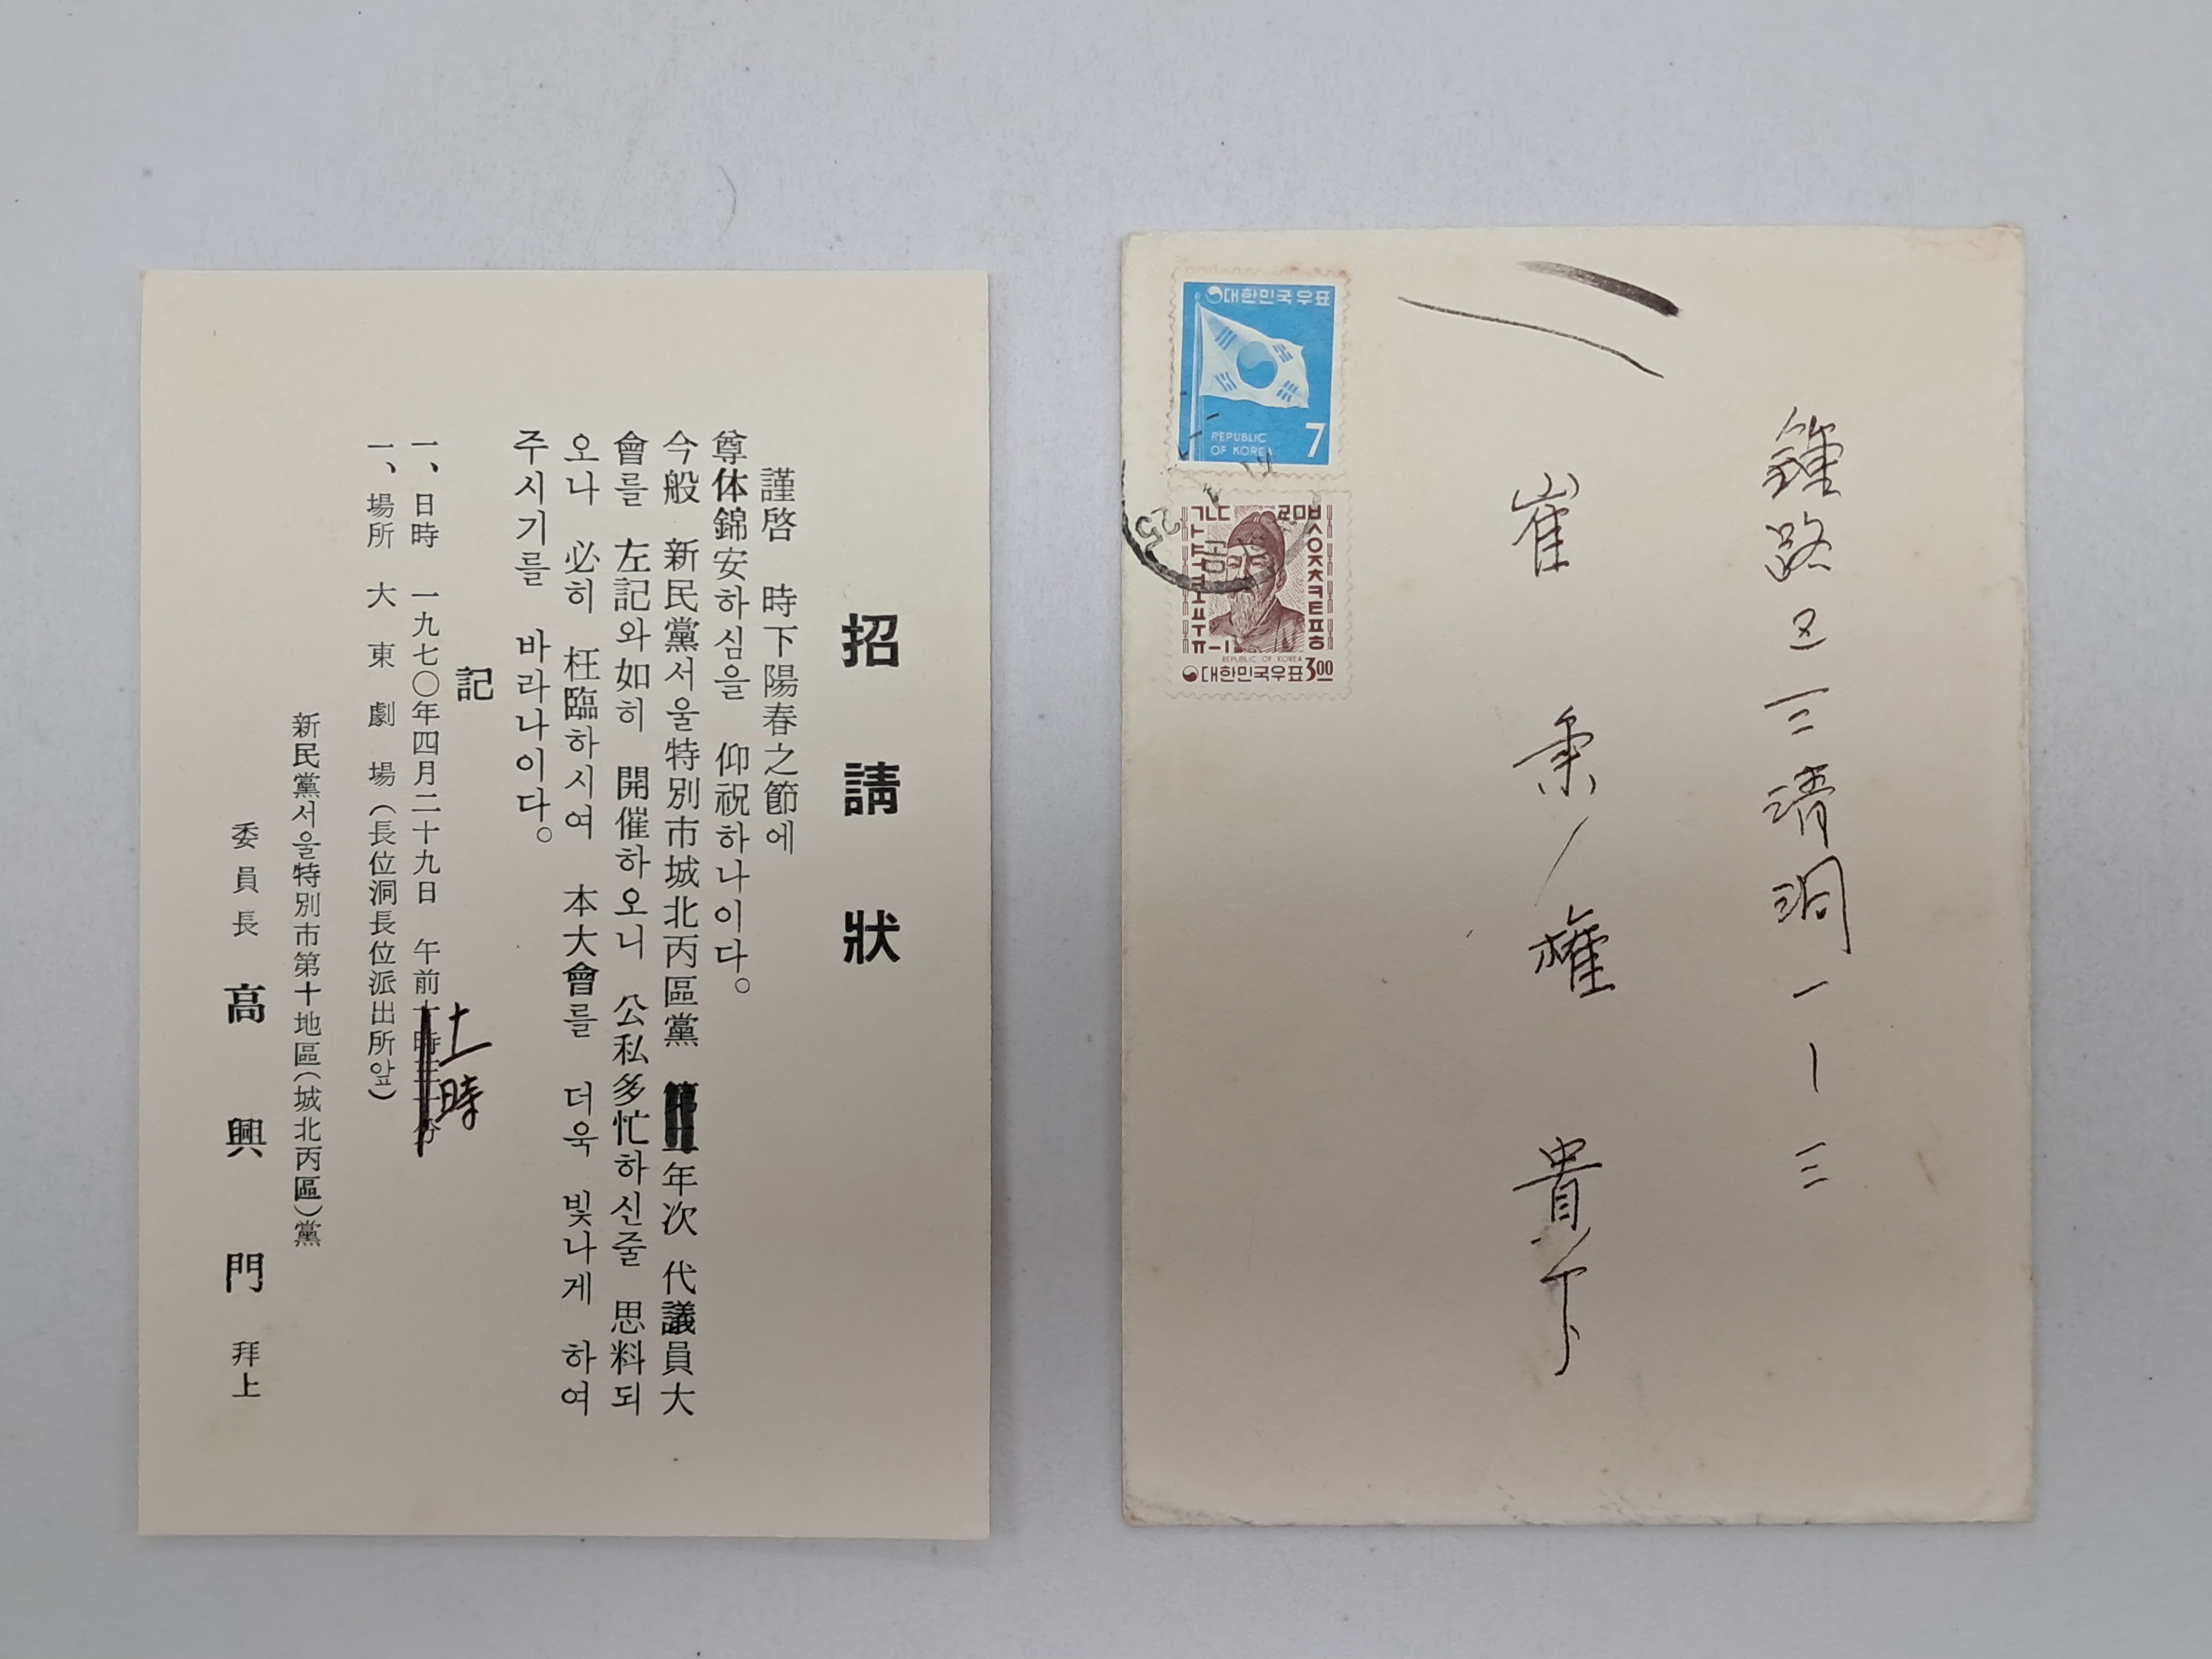 招請狀
謹啓 時下陽春之節에
尊体錦安하심을 仰祝하나이다。
今般 新民黨서울特別市城北丙區黨 年次 代議員大
會를 左記와如히 開催하오니 公私多忙하신줄 思料되
오나 必히 枉臨하시여 本大會를 더욱 빛나게 하여
주시기를 바라나이다。
記
一、日時 一九七〇年四月二十九日 午前
時
一、場所 大東劇場(長位洞長位派出所앞)
新民黨서울特別市第十地區(城北丙區)黨
委員長 高興門 拜上
대한민국우표
REPUBLIC
OF KOREA
7
ㄱㄴㄷ ㄹㅁㅂ
ㅅㅇㅈㅊㅋㅌㅍㅎ
REPUBLIC OF KOREA
대한민국우표 3.00
25
鍾路区三淸洞一ー三
崔秉權 貴下